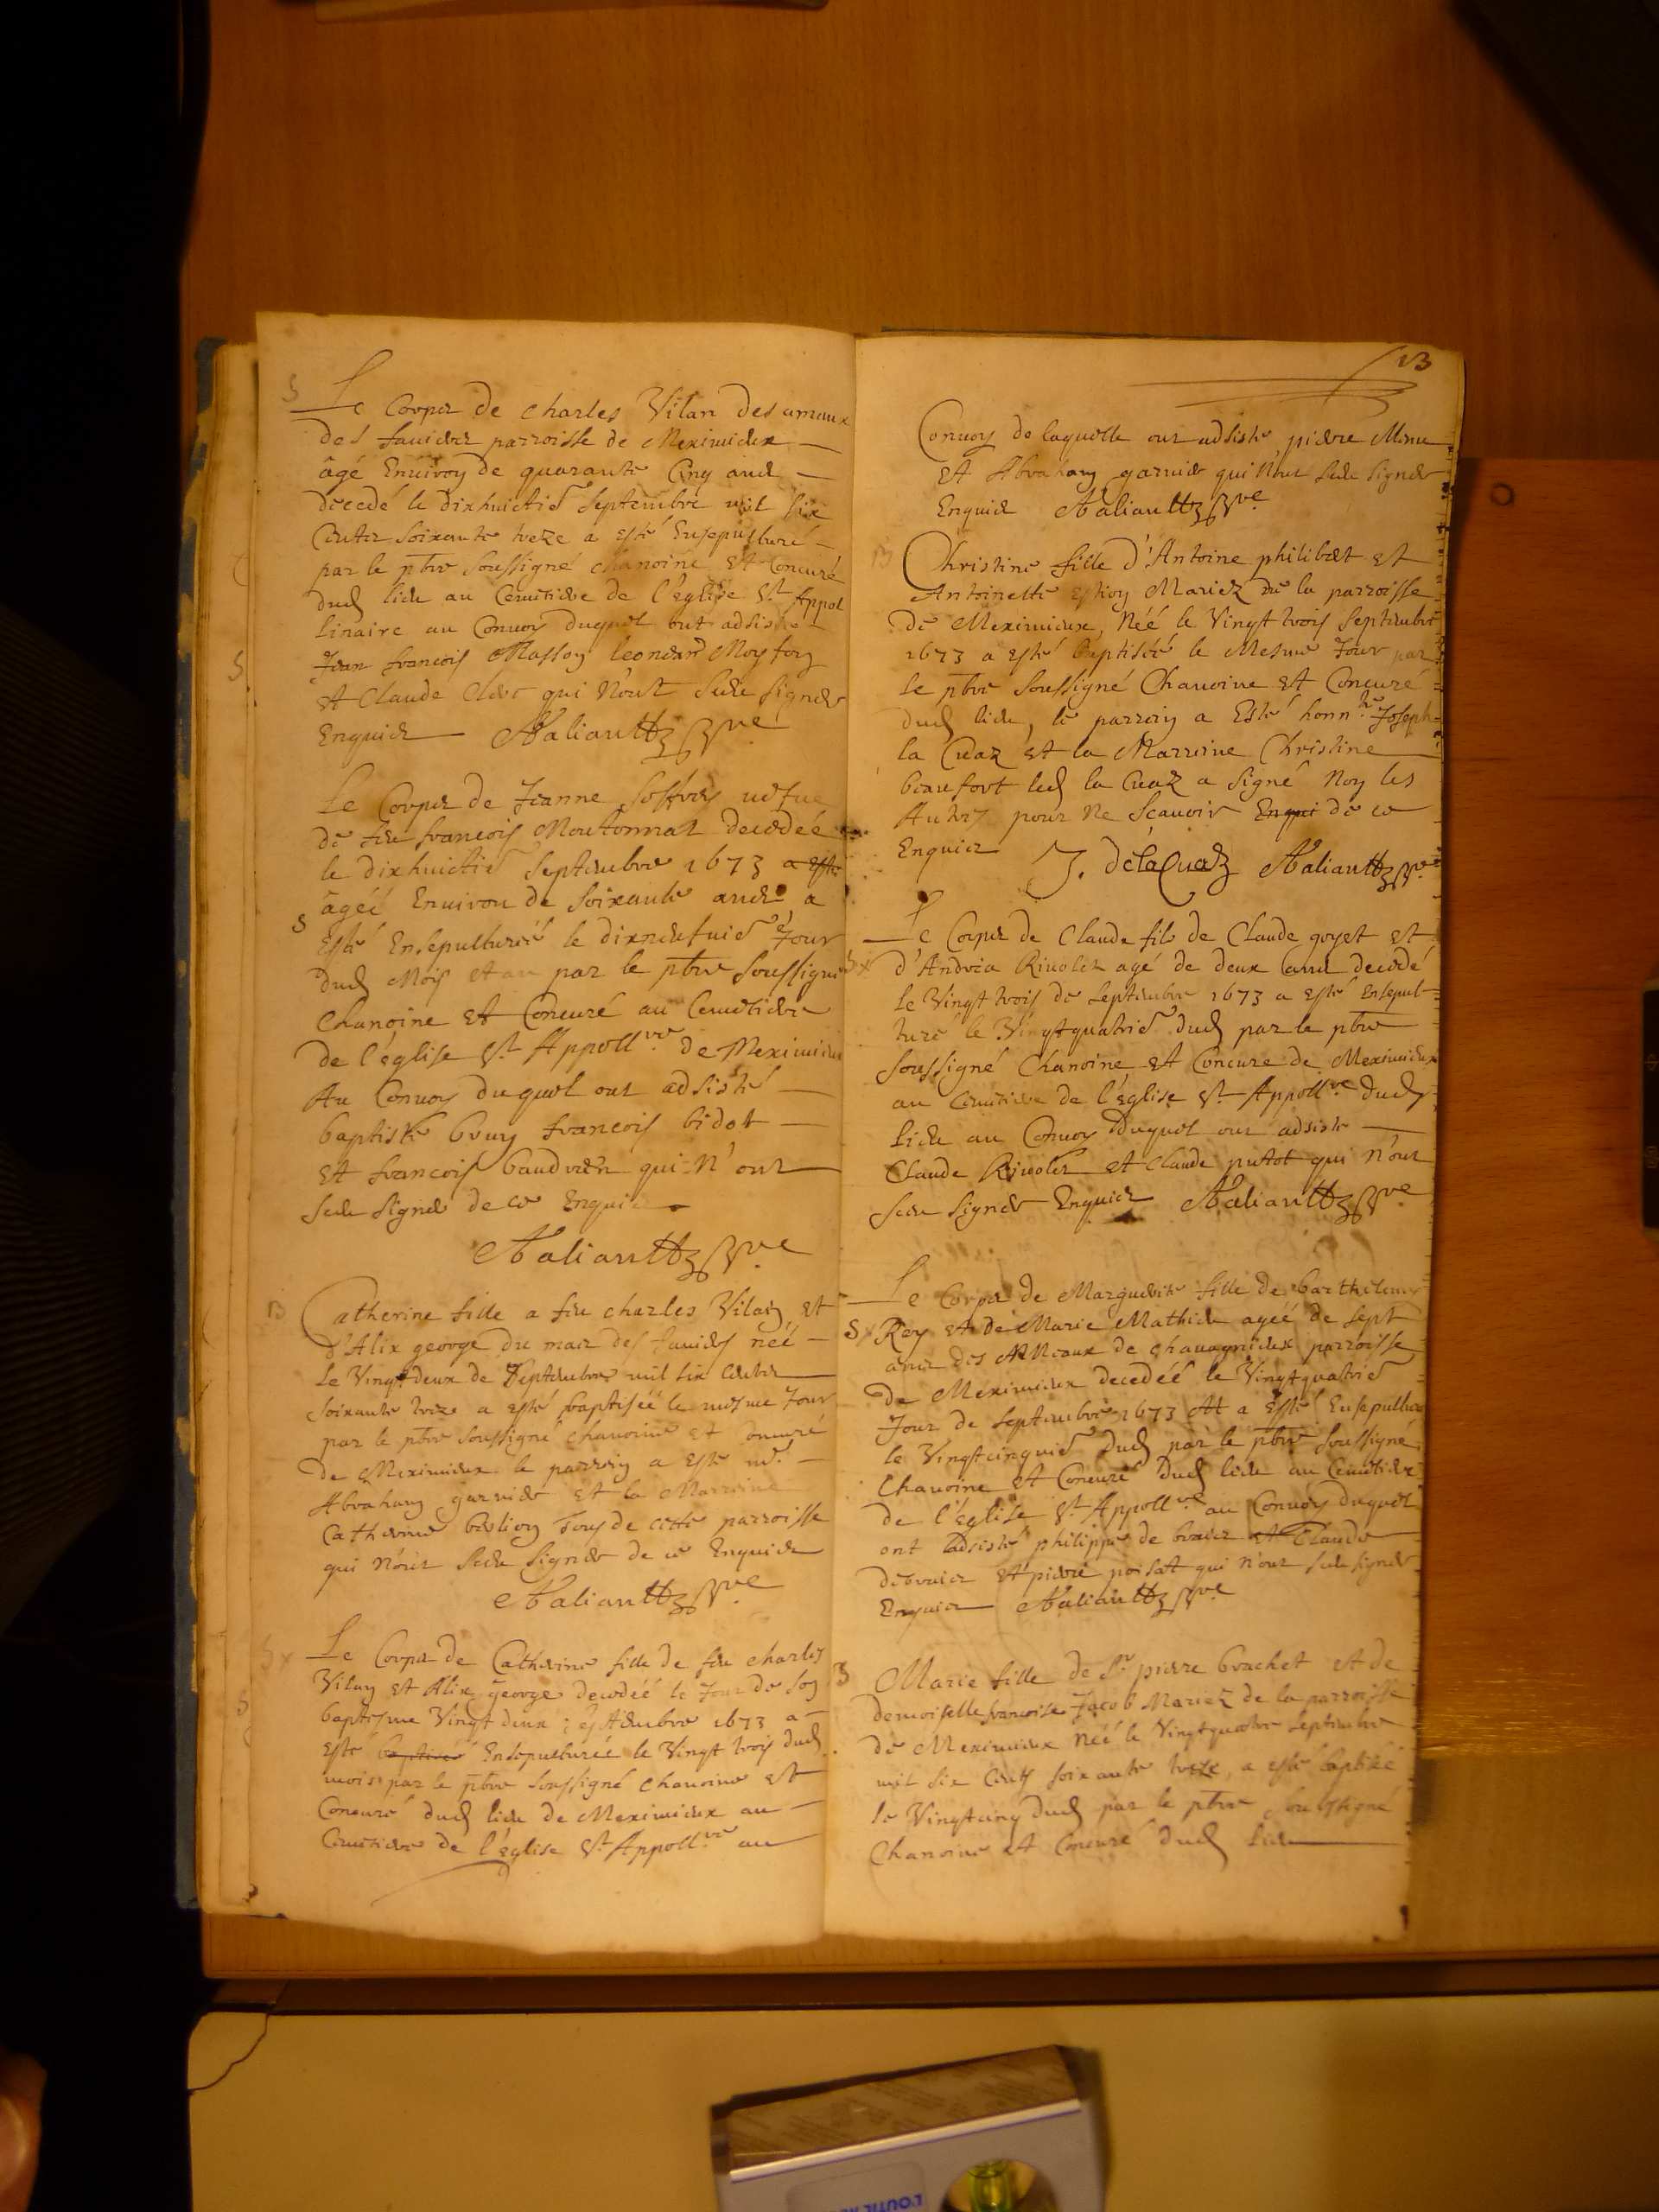 S
Le Corps de Charles Vilan des amaux
des fauieres parroisse de Meximieux
âgé Enuiron de quarante Cinq ans
decedé le dixhuictie Septembre mil six
Cents soixante treze a esté Ensepulturé
par le pbre soussigné chanoine Et Concuré
dud lieu au Cemetiere de l'église St Appol
linaire au Conuoy duquel ont adsisté
Jean francois Masson leonard
Et Claude Clerc qui N'ont sceu signer
Enquis Aaliaultz pbre
Le Corps de Jeanne uefue
de feu francois Moutonnat decedée
le dixhuictie Septembre 1673 a esté
âgée Enuiron de soixante ans a
S
Esté Ensepulturée le dixneufuie Jour
dud Mois et an par le pbre soussigné
Chanoine Et Concuré au Cemetiere
de l'église St Appollre de Meximieux
Au Conuoy duquel ont adsisté
baptiste brun francois bidot
Et francois qui N'ont
sceu signer de ce Enquis
Aaliaultz pbre
B
Catherine fille a feu charles Vilan Et
d'Alix george du mas des fauieres née
Le Vingtdeux de Septembre mil six cents
soixante treze a esté baptisée le mesme Jour
par le pbre soussigné chanoine et concuré
de Meximieux le parrain a esté
Abraham garnier et la Marraine
Catherine berlion Tous de cette parroisse
qui N'ont sceu signer de ce Enquis
Aaliaultz pbre
S x
Le Corps de Catherine fille de feu charles
Vilan Et Alix george decedée le Jour de son
baptesme Vingt deux septembre 1673 a
Esté baptisée Ensepulturée le Vingt trois dud
mois par le pbre soussigné chanoine Et
Concuré dud lieu de Meximieux au
Cemetiere de l'église St Appollre au
13
Conuoy de laquelle ont adsisté pierre
Et Abraham garnier qui N'ont sceu signer
Enquis Aaliaultz pbre
B
Christine fille d'Antoine philibert Et
Antoinette Mariez de la parroisse
de Meximieux, Née le Vingt trois Septembre
1673 a esté Baptisée le Mesme Jour par
le pbre soussigné Chanoine Et Concuré
dud lieu, le parrain a Esté honnble Joseph
la Cuaz Et la Marraine Christine
beaufort led la Cuaz a signé Non les
Autres pour Ne scauoir Enqui de ce
Enquis J. delaCuaz Aaliaultz pbre
S x
Le Corps de Claude fils de Claude goyet Et
d'Andrea Riuolet agé de deux ans decedé
le Vingt trois de septembre 1673 a esté Ensepul=
turé le Vingtquatrie dud par le pbre
soussigné Chanoine Et Concure de Meximieux
au cemetiere de l'église St Appollre dud
lieu au Conuoy Duquel ont adsisté
Claude Riuolet Et Claude putot qui N'ont
sceu signer Enquis Aaliaultz pbre
S x
Le Corps de Marguerite fille de barthelemy
Rey et de Marie Mathieu agée de sept
ans des parroisse
de Meximieux decedée le Vingtquatrie
Jour de septembre 1673 Et a Esté Ensepulturé
le Vingtcinquie dud par le pbre soussigné
Chanoine Et Concuré dud lieu au Cemetiere
de l'église St Appollre au Conuoy duquel
ont adsisté philippe de et Claude
Et pierre poisat qui N'ont sceu signer
Enquis Aaliaultz pbre
B
Marie fille de Sr pierre brachet et de
demoiselle francoise Jacob Mariez de la parroisse
de Meximieux Née le Vingtquatre septembre
mil six Cents soixante treze, a esté baptisé
le Vingtcinq dud par le pbre soussigné
Chanoine Et Concuré dud lieu